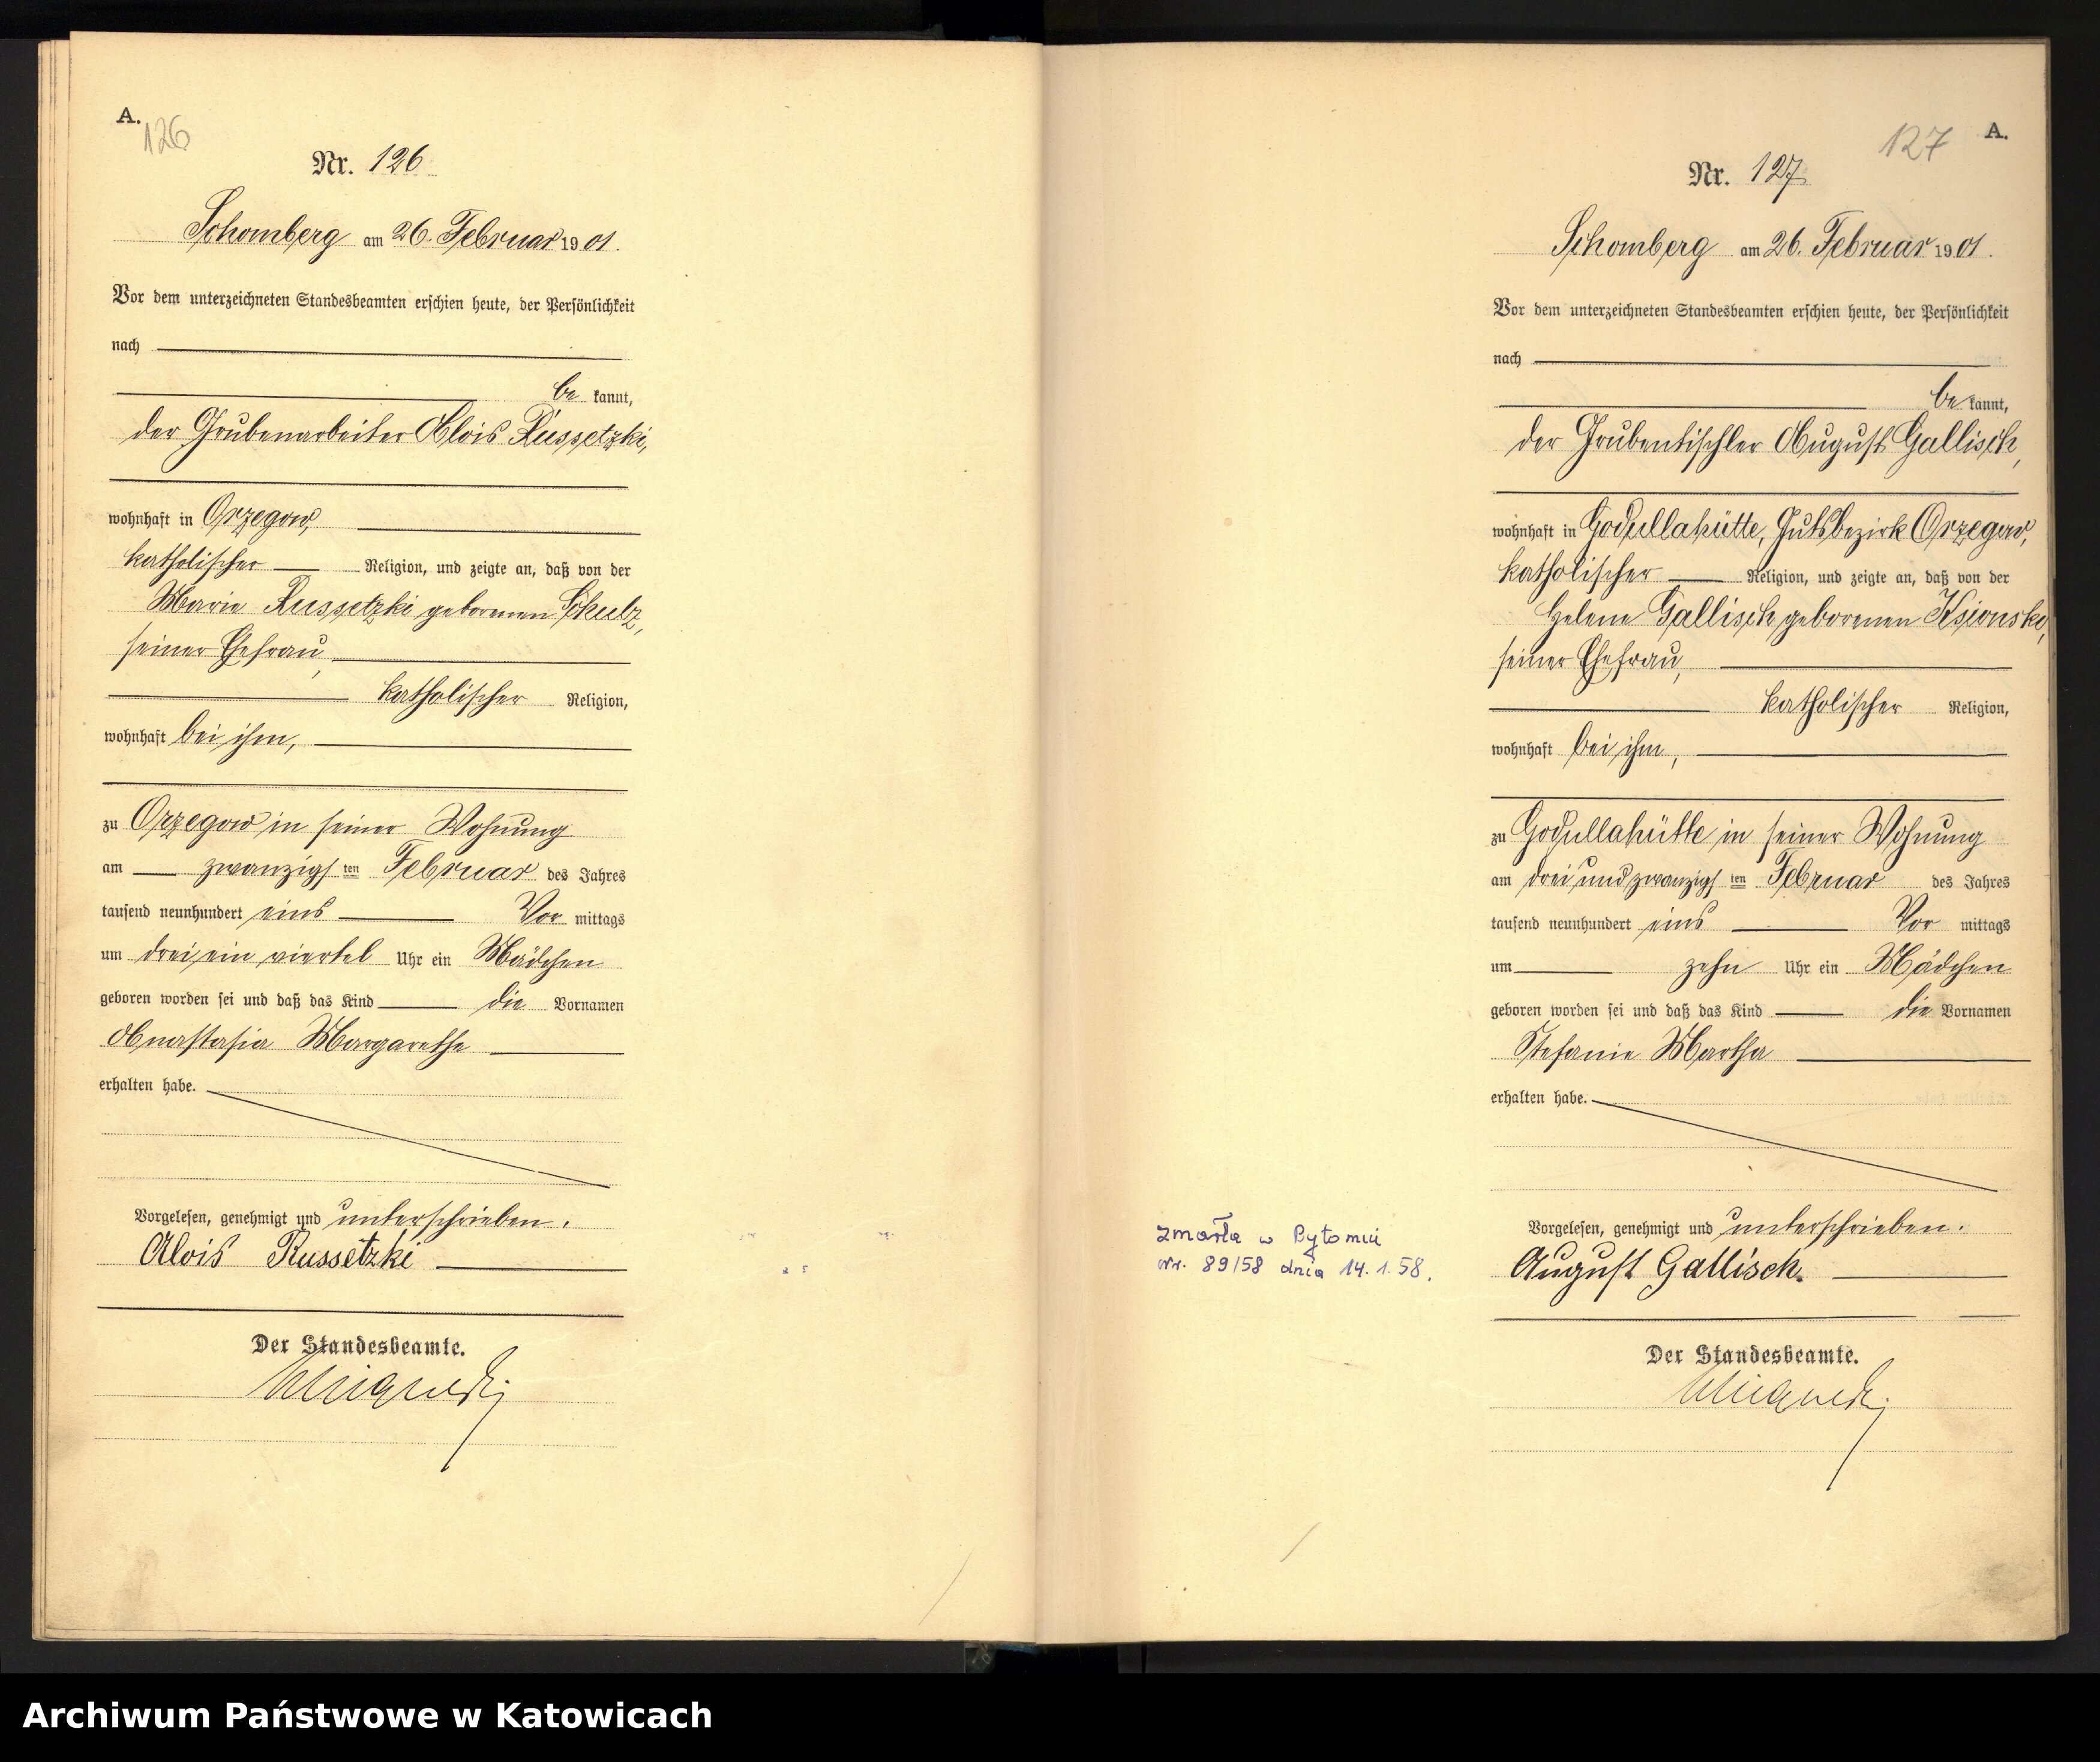 A.
126
Nr. 126
Schomberg am 26. Februar 1901.
Vor dem unterzeichneten Standesbeamten erschien heute, der Persönlichkeit
nach
be kannt,
der Grubenarbeiter Alois Russetzki,
wohnhaft in Orzegow,
katholischer Religion, und zeigte an, daß von der
Marie Russetzki geborenen Schulz,
seiner Ehefrau,
katholischer Religion,
wohnhaft bei ihm,
zu Orzegow in seiner Wohnung
am zwanzigsten Februar des Jahres
tausend neunhundert eins Vor mittags
um drei ein viertel Uhr ein Mädchen
geboren worden sei und daß das Kind die Vornamen
Anastasia Margarethe
erhalten habe.
Vorgelesen, genehmigt und unterschrieben.
Alois Russetzki
Der Standesbeamte.
127
A.
Nr. 127
Schomberg am 26. Februar 1901.
Vor dem unterzeichneten Standesbeamten erschien heute, der Persönlichkeit
nach
be kannt,
der Grubentischler August Gallisch,
wohnhaft in Godullahütte, Gutsbezirk Orzegow,
katholischer Religion, und zeigte an, daß von der
Helene Gallisch geborenen Ksionsko,
seiner Ehefrau,
katholischer Religion,
wohnhaft bei ihm,
zu Godullahütte in seiner Wohnung
am drei und zwanzigsten Februar des Jahres
tausend neunhundert eins Vor mittags
um zehn Uhr ein Mädchen
geboren worden sei und daß das Kind die Vornamen
Stefanie Martha
erhalten habe.
zmarła w Bytomiu
nr. 89/58 dnia 14.1.58.
Vorgelesen, genehmigt und unterschrieben.
August Gallisch.
Der Standesbeamte.
Archiwum Państwowe w Katowicach